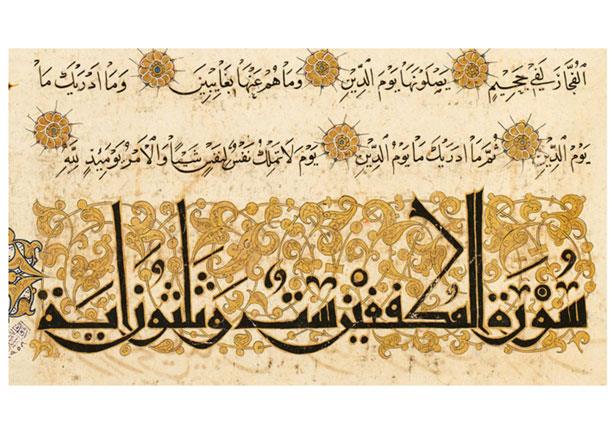 الفُجَّارَ لَفِي جَحِيمٍ يَصْلَوْنَهَا يَوْمَ الدِّينِ وَمَا هُمْ عَنْهَا بِغَايِبِينَ وَمَا ادْرَيكَ مَا
يَوْمُ الدِّينِ ثُمَّ مَا ادْرَيكَ مَا يَوْمُ الدِّينِ يَوْمَ لَا تَمْلِكُ نَفْسٌ لِنَفْسٍ شَيْـًٔا وَالْامْرُ يَوْمَيِذٍ لِلَّهِ
سُوْرَة المطففين ست وثلثون اية